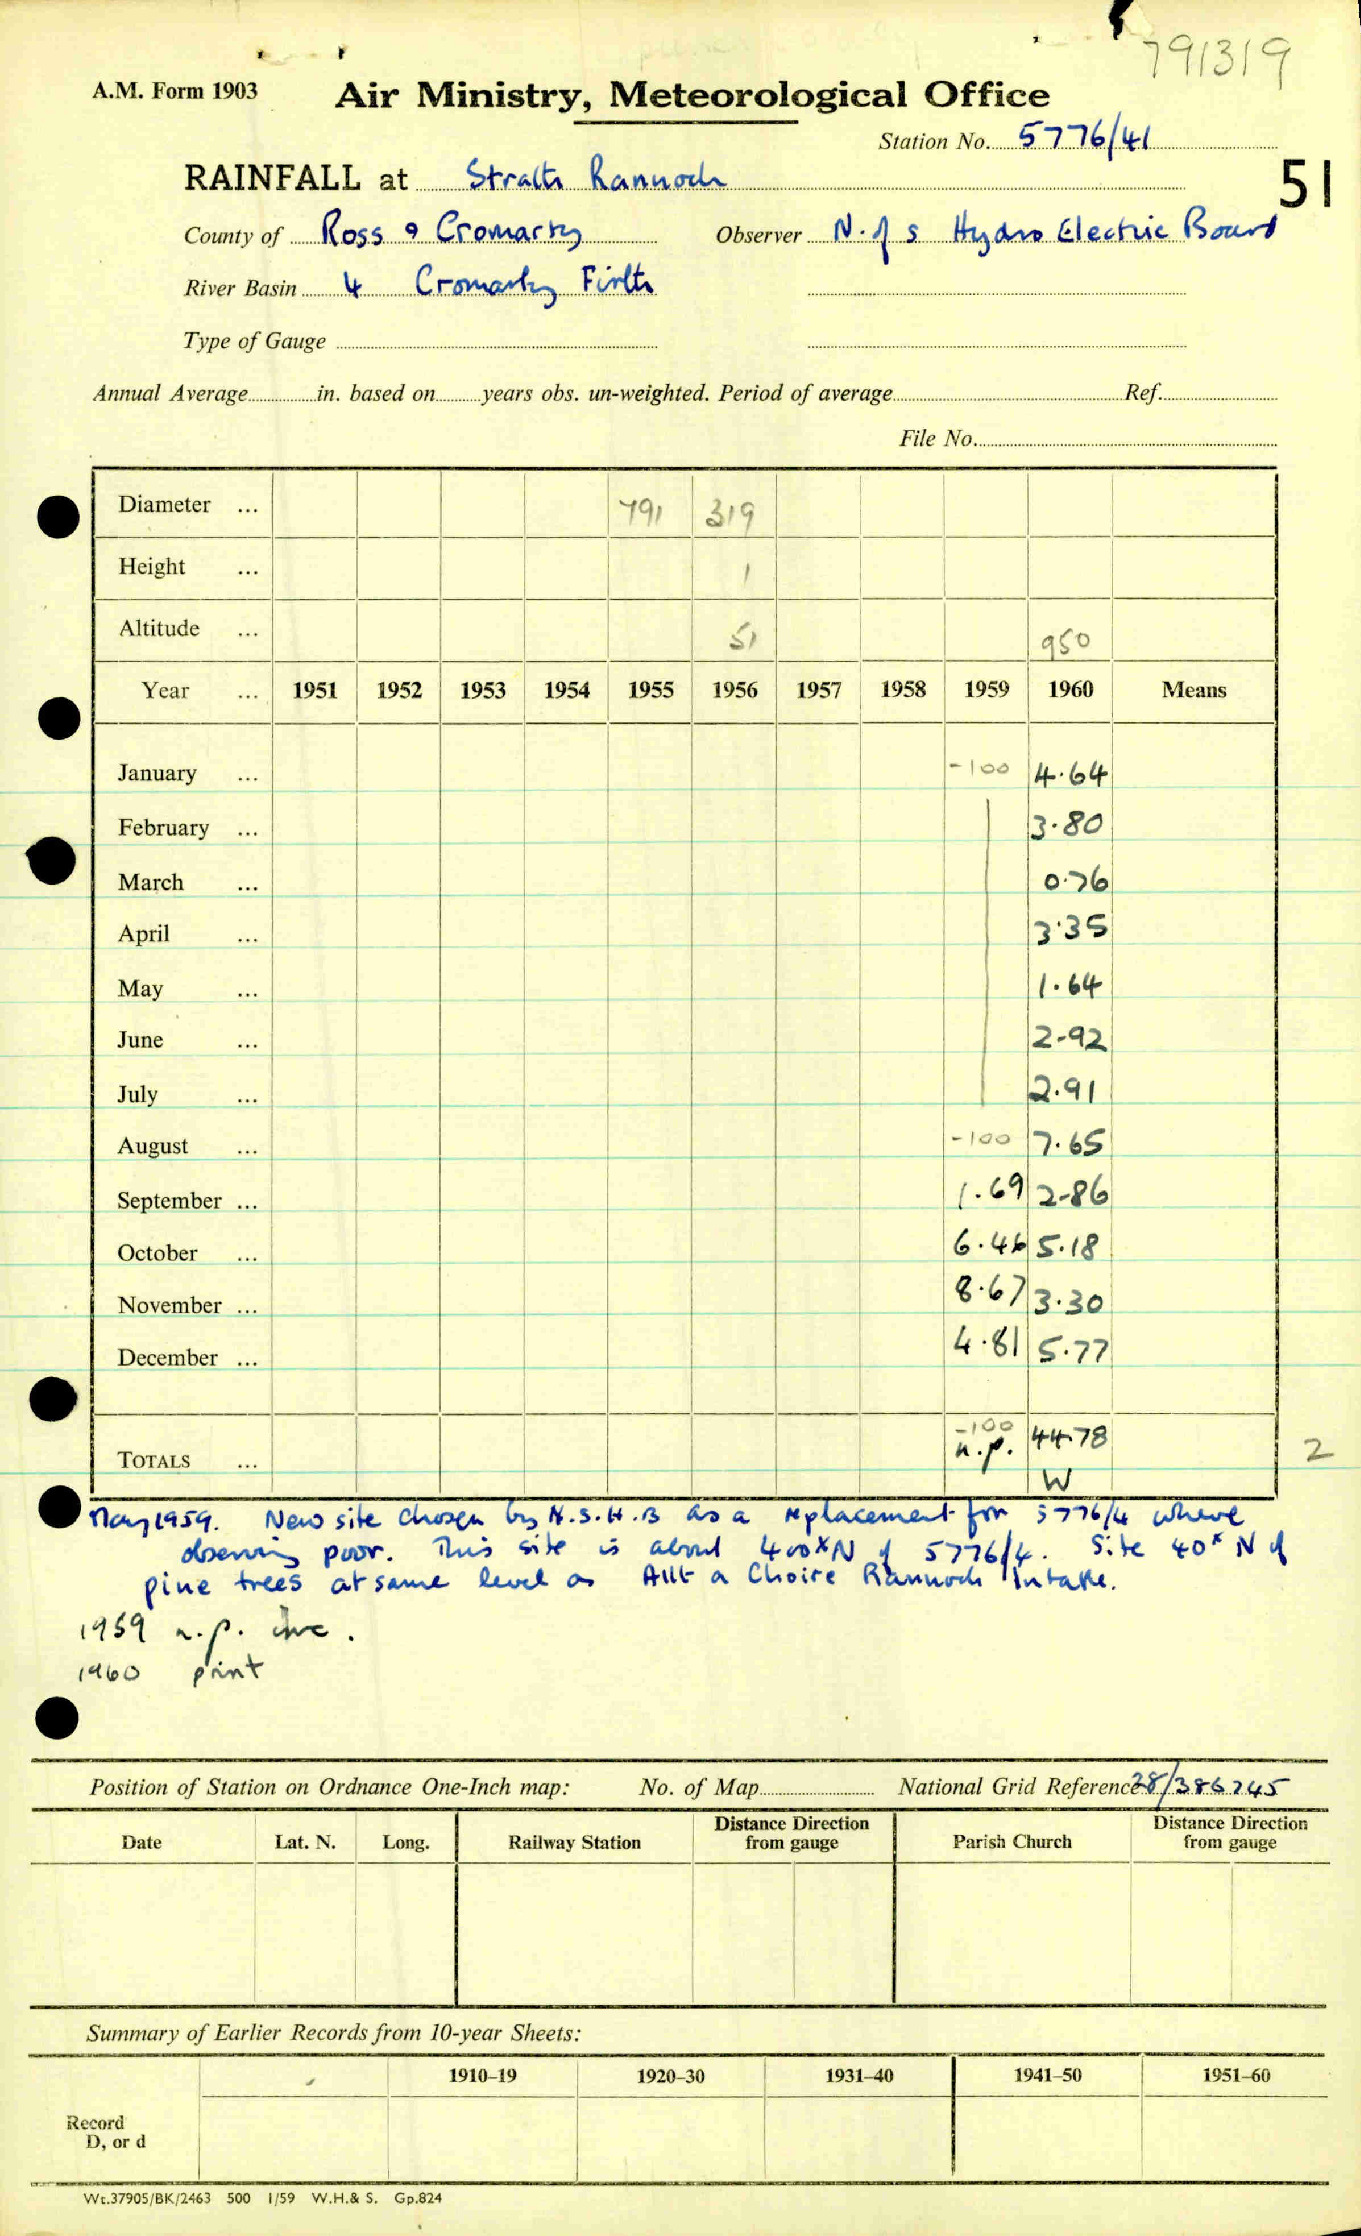 791319
A.M. Form 1903
Air Ministry, Meteorological Office
Station No. 5776/41
RAINFALL at Strath Rannoch
51
County of Ross & Cromarty Observer N. of S Hydro Electric Board
River Basin 4 Cromarty Firth
Type of Gauge
Annual Average in. based on years obs. un-weighted. Period of average Ref.
File No.
Diameter ... 791 319
Height ... 1
Altitude ... 51 950
Year ... 1951 1952 1953 1954 1955 1956 1957 1958 1959 1960 Means
January ... -100 4.64
February ... 3.80
March ... 0.76
April ... 3.35
May ... 1.64
June ... 2.92
July ... 2.91
August ... -100 7.65
September ... 1.69 2.86
October ... 6.46 5.18
November ... 8.67 3.30
December ... 4.81 5.77
-100
TOTALS ... n.p. 44.78 2
W
May 1959. New site chosen by N.S.H.B as a replacement for 5776/4 where
observing poor. This site is about 400x N of 5776/4. Site 40x N of
pine trees at same level as Allt a Choire Rannoch Intake.
1959 n.p. inc.
1960 print
Position of Station on Ordnance One-Inch map: No. of Map National Grid Reference 28/386745
Date Lat. N. Long. Railway Station Distance Direction from gauge Parish Church Distance Direction from gauge
Summary of Earlier Records from 10-year Sheets:
1910–19 1920–30 1931–40 1941–50 1951–60
Record
D, or d
Wt.37905/BK/2463 500 1/59 W.H.& S. Gp.824